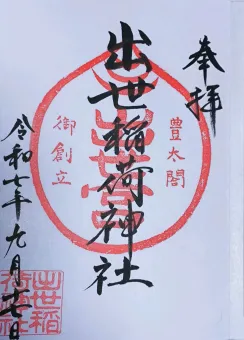 奉拝
豊太閤
出世稲荷神社
御創立
令和七年九月十七日
出世稲
荷神社